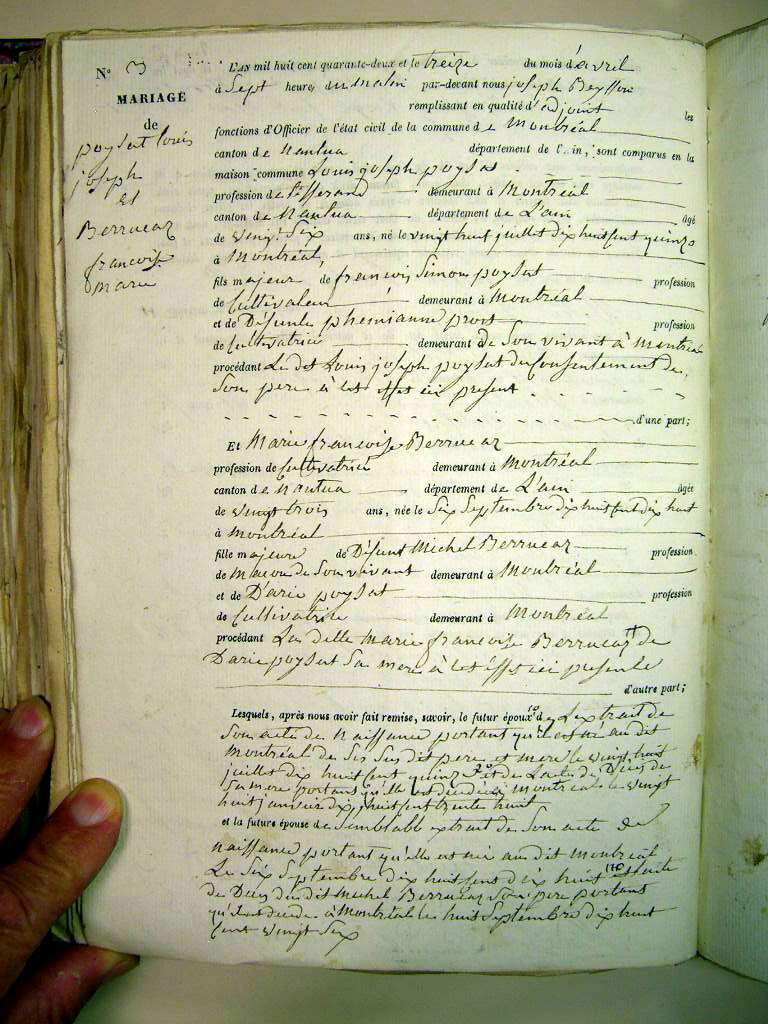 N° 3
MARIAGE
de
poysat louis
joseph
et
Berrucaz
francoise
marie
L'AN mil huit cent quarante-deux et le treize du mois d'avril
à Sept heures du matin par-devant nous joseph Beysson
remplissant en qualité d'adjoint les
fonctions d'Officier de l'état civil de la commune de Montréal
canton de Nantua département de l'Ain, sont comparus en la
maison commune Louis joseph poysat
profession de demeurant à Montréal
canton de Nantua département de L'ain âgé
de vingt Six ans, né le vingt huit juillet dix huit Cent quinze
à Montréal,
fils majeur de francois Simon poysat profession
de Cultivateur demeurant à Montréal
et de Défunte phemianne prost profession
de Cultivatrice demeurant de Son vivant à Montréal
procédant Le dit Louis joseph poysat du Consentement de
Son pere à cet effet ici présent
d'une part;
Et Marie francoise Berrucaz
profession de Cultivatrice demeurant à Montréal
canton de Nantua département de L'ain âgée
de vingt trois ans, née le Six Septembre dix huit Cent dix huit
à montréal
fille majeure de Défunt Michel Berrucaz profession
de Macon de Son vivant demeurant à Montréal
et de Darie poysat profession
de Cultivatrice demeurant à Montréal
procédant La delle Marie francoise Berrucaz de
Darie poysat Sa mere à cet effet ici presente
d'autre part;
Lesquels, après nous avoir fait remise, savoir, le futur époux 1o de L'extrait de
Son acte de Naissance portant qu'il est né au dit
Montréal de Ses Sus dit pere et mere le vingt huit
juillet dix huit Cent quinze 2o et de L'acte de Deces de
Sa mere portant qu'elle est decedée à Montréal le vingt
huit janvier dix huit Cent trente huit
et la future épouse de Semblable extrait de Son acte de
Naissance portant qu'elle est née au dit Montréal
Le Six Septembre dix huit Cent dix huit
de Deces du dit Michel Berrucaz Son pere portant
qu'il est decedé à Montréal le huit Septembre dix huit
Cent vingt Six